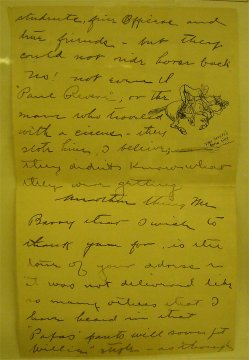 students, fine Officers and
true friends - but they
could not ride horse back
'No! not even if
'Paul Revere', or the
man who traveled
with a circus - they
stole him, I believe
they didnt know what
they were getting
Another thing Mr
Barry that I wish to
thank you for, is the
tone of your address
it was not delivered like
so many others that I
have heard in that
"Papas' pants will soon fit
Willie"